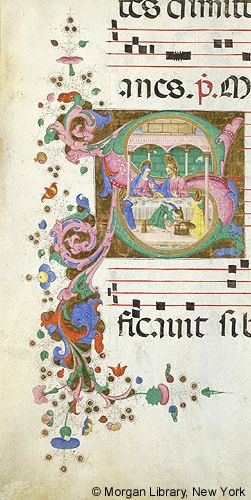 tes dimitt
anes. p̄. M
S
ficauit sib
© Morgan Library, New York